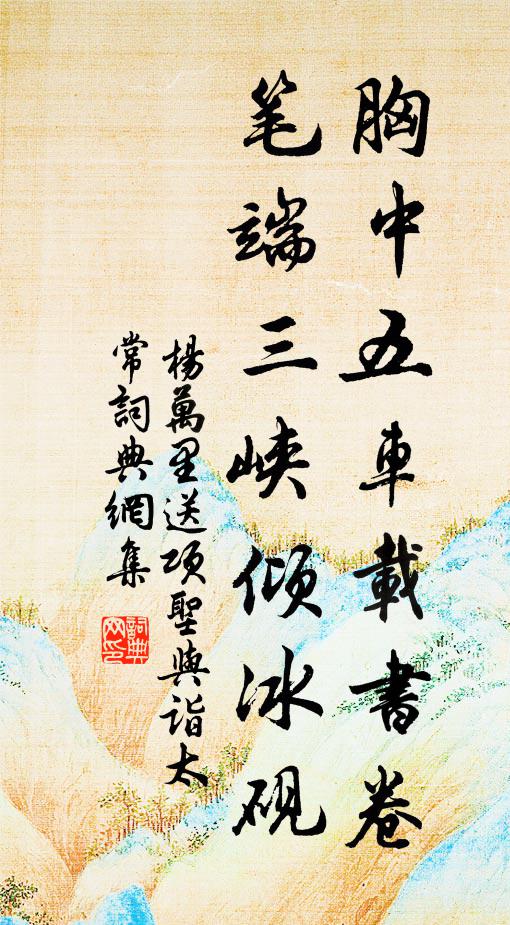 胸中五車載書卷
笔端三峡傾冰硯
楊萬里送項聖與詣太
常詞典網集
詞典
网印